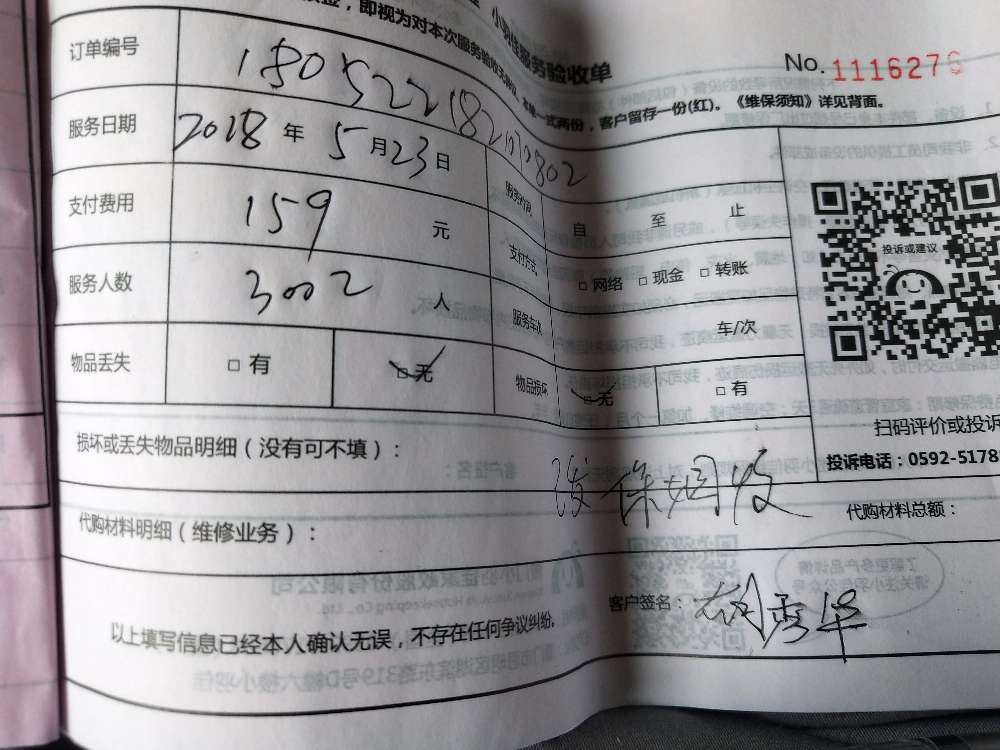 小羽佳服务验收单
No. 1116276
即视为对本次服务验收
一式两份，客户留存一份(红)。《维保须知》详见背面。
订单编号 180522182010802
服务日期 2018 年 5 月 23 日 服务时间 自 至 止
支付费用 159 元 支付方式 □ 网络 □ 现金 □ 转账
服务人数 3002 人 服务车次 车/次
物品丢失 □ 有 □ 无 物品损坏 □ 无 □ 有
投诉或建议
扫码评价或投诉
投诉电话：0592-5178
损坏或丢失物品明细（没有可不填）：
代购材料明细（维修业务）： 代购材料总额：
以上填写信息已经本人确认无误，不存在任何争议纠纷。 客户签名：